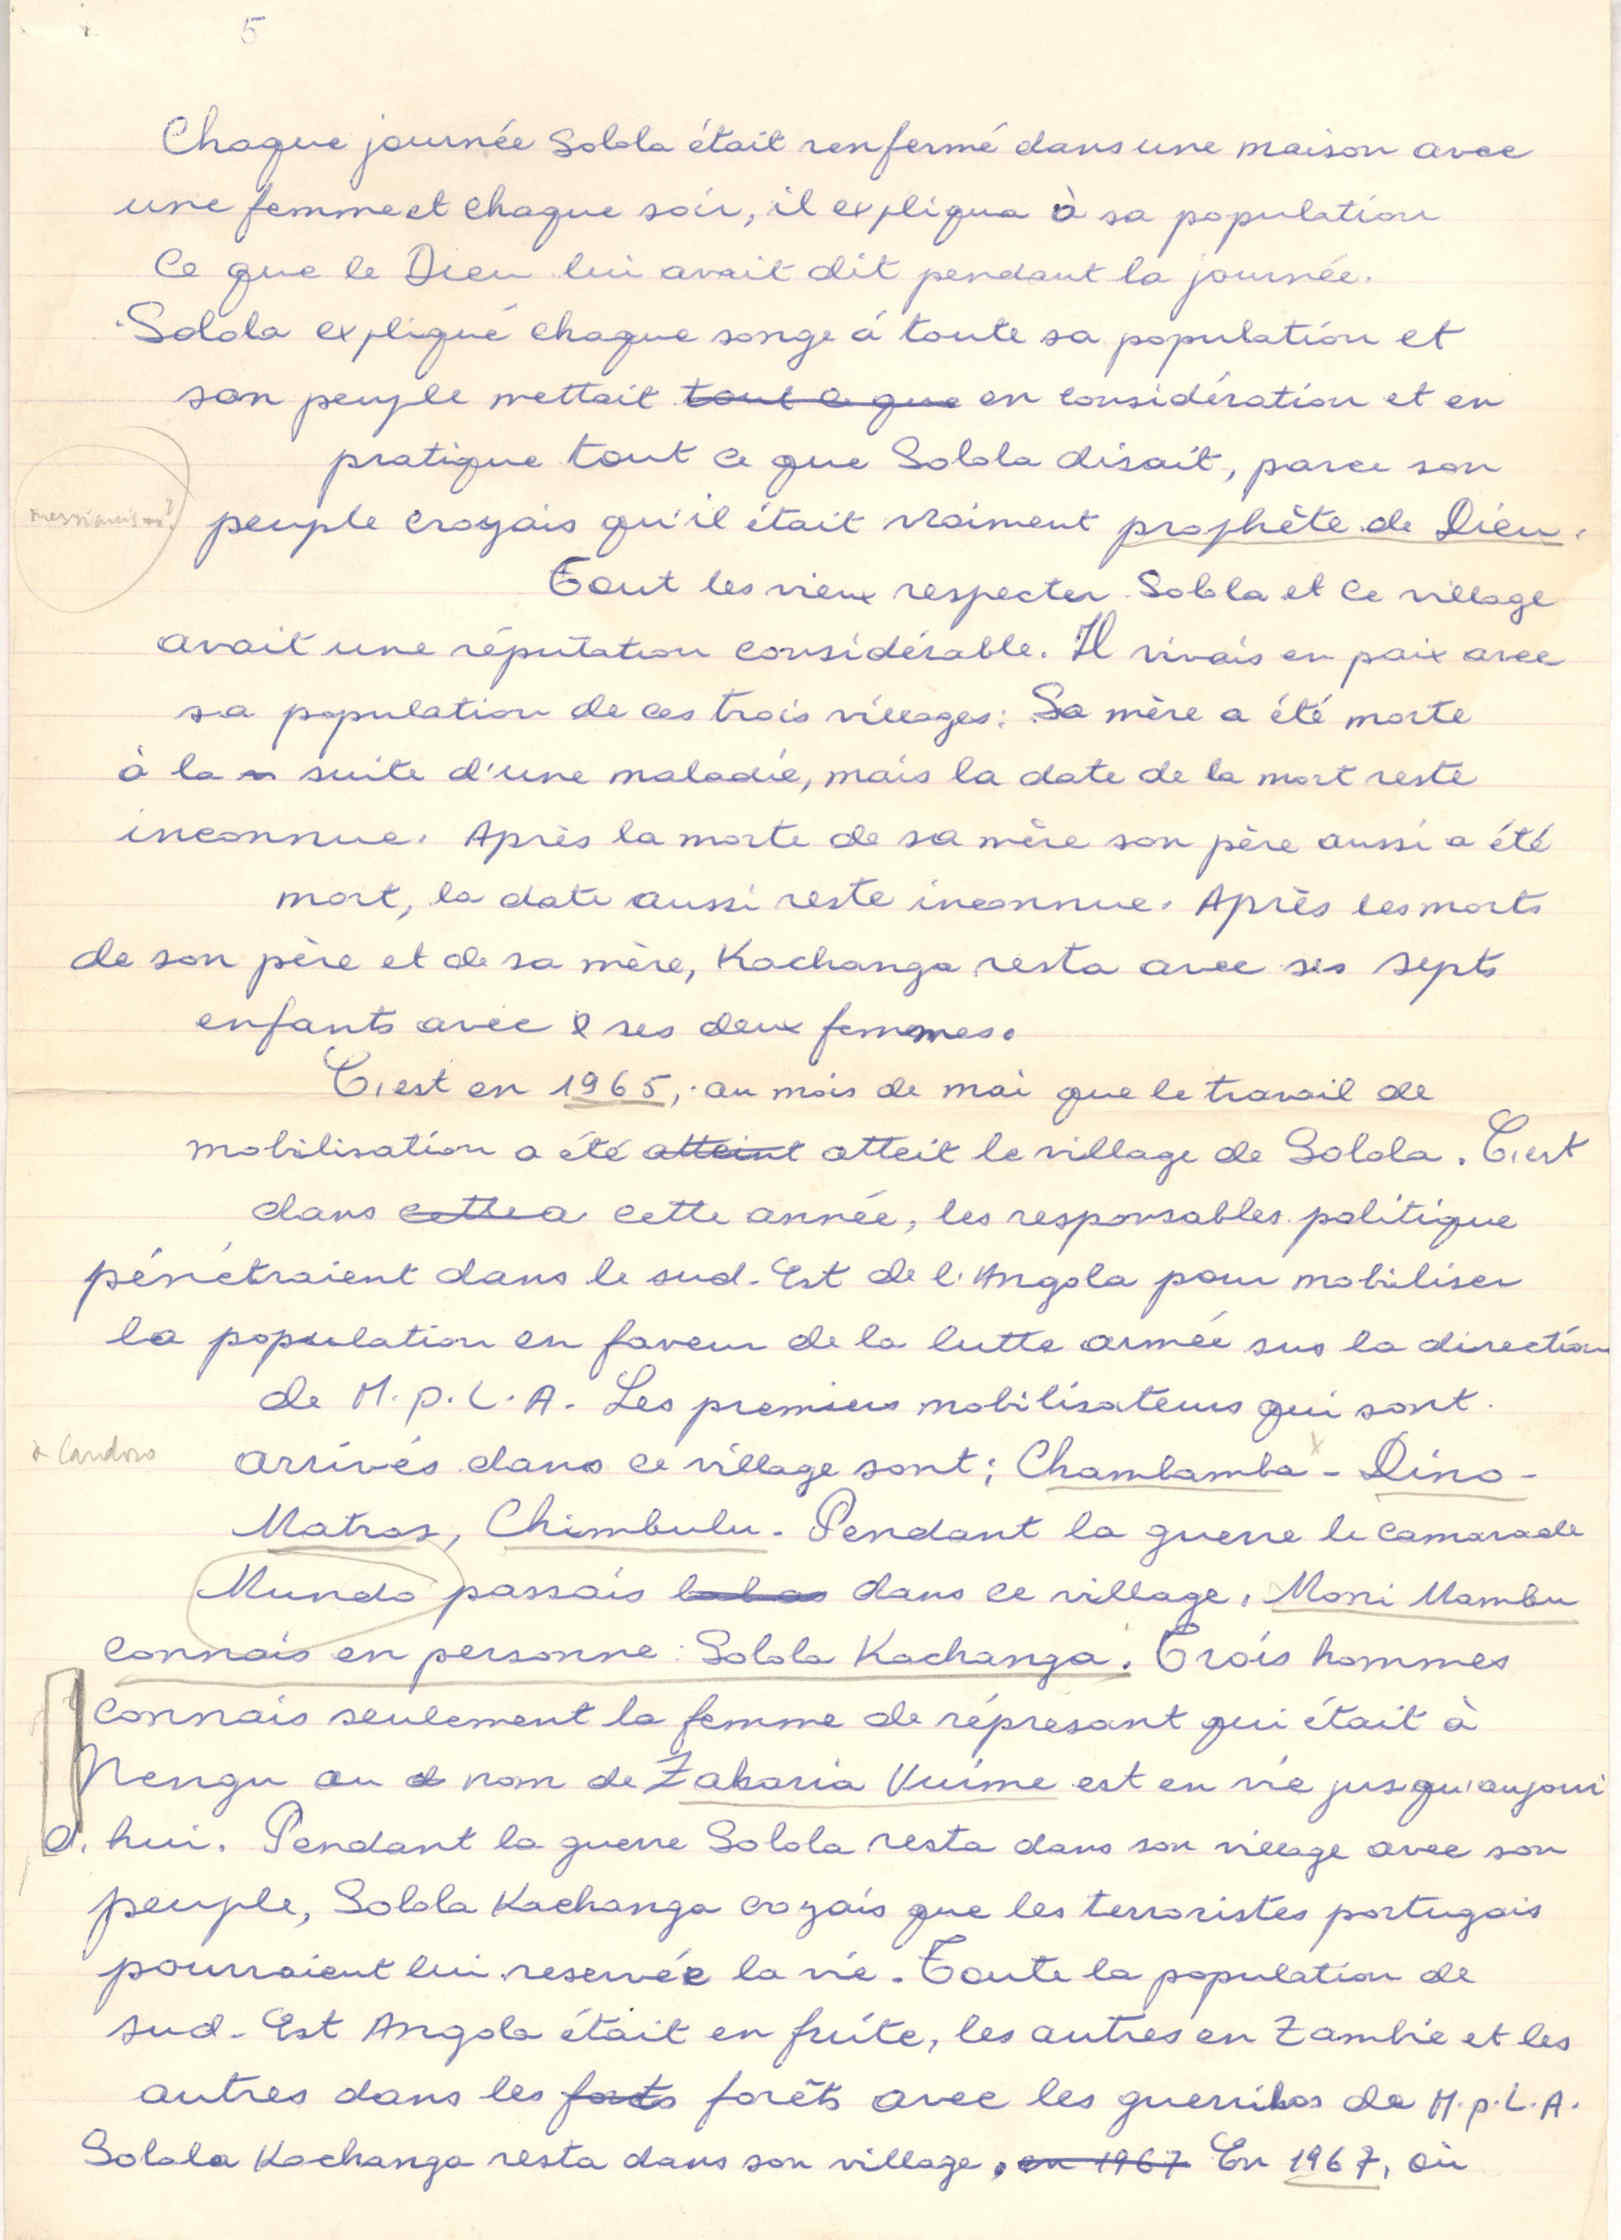 5
Chaque journée Solola était renfermé dans une maison avec
une femme et chaque soir, il expliqua à sa population
Ce que le Dieu lui avait dit pendant la journée.
Solola expliqué chaque songe á toute sa population et
son peuple mettait tout ce que en considération et en
pratique tout ce que Solola disait, parce son
messianisme?
peuple croyais qu'il était vraiment prophète de Dieu.
Tout les vieux respecter Solola et ce village
avait une réputation considérable. Il vivais en paix avec
sa population de ces trois villages: Sa mère a été morte
à la suite d'une maladie, mais la date de la mort reste
inconnue. Après la morte de sa mère son père aussi a été
mort, la date aussi reste inconnue. Après les morts
de son père et de sa mère, Kachanga resta avec ses septs
enfants avec ses deux femmes.
C'est en 1965, au mois de mai que le travail de
mobilisation a été atteint atteit le village de Solola. C'est
dans cette a cette année, les responsables politique
pénétraient dans le sud-Est de l'Angola pour mobiliser
la population en faveur de la lutte armée sus la direction
de M.P.L.A. Les premiers mobilisateurs qui sont
arrivés dans ce village sont; Chambamba x - Dino -
Matros, Chimbulu. Pendant la guerre le camarade
Mundo passais dans ce village, Moni Mambu
connais en personne: Solola Kachanga. Trois hommes
connais seulement la femme de répresant qui était à
Nengu au nom de Zakaria Vuime est en vie jusqu'aujoui
d'hui. Pendant la guerre Solola resta dans son village avec son
peuple, Solola Kachanga croyais que les terroristes portugais
pourraient lui reservée la vie. Toute la population de
sud-Est Angola était en fuite, les autres en Zambie et les
autres dans les forts forêts avec les guerrilos de M.P.L.A.
Solola Kachanga resta dans son village, en 1967 En 1967, où